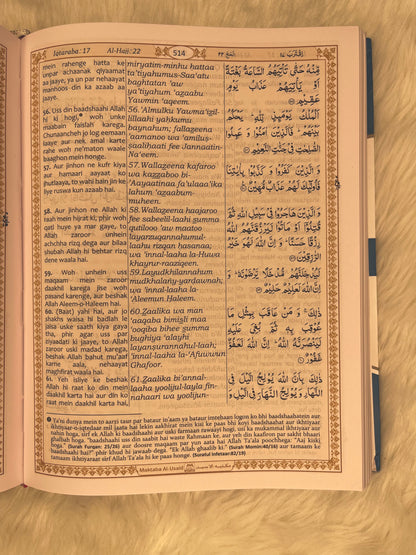 Iqtaraba: 17
Al-Hajj: 22
514
الحج ٢٢
اقترب ١٧
mein rahenge hatta ke
unpar achaanak qiyaamat
aa jaaye, ya un par nehaayat
manhoos din ka azaab aa
jaaye.
56. Uss din baadshaahi Allah
hi ki hogi, woh unke
maabain faislah karega.
Chunaancheh jo log eemaan
laaye aur nek amal karte
rahe woh ne'maton waale
baaghon mein honge.
57. Aur jinhon ne kufr kiya
aur hamaari aayaat ko
jhutlaaya, to wahi bain jin ke
liye ruswa kun azaab hai.
58. Aur jinhon ne Allah ki
raah mein hijrat ki, phir woh
qatl huye ya mar gaye, to
Allah zaroor unhein
achchha rizq dega aur bilaa
shubah Allah hi behtar rizq
dene waala hai.
59. Woh unhein uss
maqaam mein zaroor
daakhil karega jise woh
pasand karenge, aur beshak
Allah Aleem-o-Haleem hai.
60. (Baat) yahi hai, aur jo
shakhs waisa hi badlah le
jaisa uske saath kiya gaya
tha, phir agar uss par
ziyaadati ki jaaye, to Allah
zaroor uski madad karega,
beshak Allah bahut mu'aaf
karne aala, nehaayat
maghfirat waala hai.
61. Yeh isliye ke beshak
Allah hi raat ko din mein
daakhil karta hai aur din ko
raat mein daakhil karta hai,
miryatim-minhu hattaa
ta'tiyahumus-Saa'atu
baghtatan 'aw
ya'tiyahum 'azaabu
Yawmin 'aqeem.
56. 'Almulku Yawma'igil-
lillaahi yahkumu
baynahum; fallazeena
'aamanoo wa 'amilus-
saalihaati fee Jannaatin-
Na'eem.
57. Wallazeena kafaroo
wa kazzaboo bi-
'Aayaatinaa fa'ulaaa'ika
lahum 'azaabum-
muheen.
58. Wallazeena haajaroo
fee sabeelil-laahi gumma
qutilooo 'aw maatoo
layarzuqannahumul-
laahu rizqan hasanaa;
wa 'innal-laaha la-Huwa
khayrur-raaziqeen.
59. Layudkhilannahum
mudkhalany-yardawnah;
wa 'innal-laaha la-
'Aleemun Haleem.
60. Zaalika wa man
'aaqaba bimisli maa
'ooqiba bihee gumma
bughiya 'alayhi
layansurannahul-laah;
'innal-laaha la-'Afuwwun
Ghafoor.
61. Zaalika bi'annal-
laaha yoolijul-layla fin-
nahaari wa yoolijun-
مِّنْهُ حَتّٰى تَاْتِيَهُمُ السَّاعَةُ بَغْتَةً
اَوْ يَاْتِيَهُمْ عَذَابُ يَوْمٍ
عَقِيْمٍ
اَلْمُلْكُ يَوْمَىِٕذٍ لِّلّٰهِ ؕ يَحْكُمُ
بَيْنَهُمْ ؕ فَالَّذِيْنَ اٰمَنُوْا وَ عَمِلُوا
الصّٰلِحٰتِ فِيْ جَنّٰتِ النَّعِيْمِ
وَ الَّذِيْنَ كَفَرُوْا وَ كَذَّبُوْا بِاٰيٰتِنَا
فَاُولٰٓىِٕكَ لَهُمْ عَذَابٌ مُّهِيْنٌ
وَ الَّذِيْنَ هَاجَرُوْا فِيْ سَبِيْلِ اللّٰهِ ثُمَّ
قُتِلُوْۤا اَوْ مَاتُوْا لَيَرْزُقَنَّهُمُ اللّٰهُ
رِزْقًا حَسَنًا ؕ وَ اِنَّ اللّٰهَ لَهُوَ خَيْرُ
الرّٰزِقِيْنَ
لَيُدْخِلَنَّهُمْ مُّدْخَلًا يَّرْضَوْنَهٗ ؕ وَ
اِنَّ اللّٰهَ لَعَلِيْمٌ حَلِيْمٌ
ذٰلِكَ ۚ وَ مَنْ عَاقَبَ بِمِثْلِ مَا
عُوْقِبَ بِهٖ ثُمَّ بُغِيَ عَلَيْهِ
لَيَنْصُرَنَّهُ اللّٰهُ ؕ اِنَّ اللّٰهَ لَعَفُوٌّ
غَفُوْرٌ
ذٰلِكَ بِاَنَّ اللّٰهَ يُوْلِجُ الَّيْلَ فِي
النَّهَارِ وَ يُوْلِجُ النَّهَارَ فِي الَّيْلِ
Ya'ni dunya mein to aarzi taur par bataur in'aam ya bataur imtehaan logon ko bhi baadshaahatein aur
ikhtiyaar-o-iqtedaar mil jaata hai lekin aakhirat mein kisi ke paas bhi koyi baadshaahat aur ikhtiyaar
nahin hoga, sirf ek Allah ki baadshaahi aur uski farmaan rawaayi hogi, usi ka mukammal ikhtiyaar aur
ghalbah hoga. "baadshaahi uss din saabit hai waste Rahmaan ke, aur yeh din kaafiron par sakht bhaari
hoga." (Surah Furqan: 25/26) aur doosre maqaam par yun aata hai Allah Ta'ala poochhenge: "Aaj kiski
baadshaahi hai?" phir khud hi jawaab dega. "Ek Allah ghaalib ki." (Surah Momin:40/16) aur tamaam ke
tamaam ikhtiyaraat sirf Allah Ta'ala hi ke paas honge. (Suratul Infetaar:82/19)
Maktaba Al-Usaid